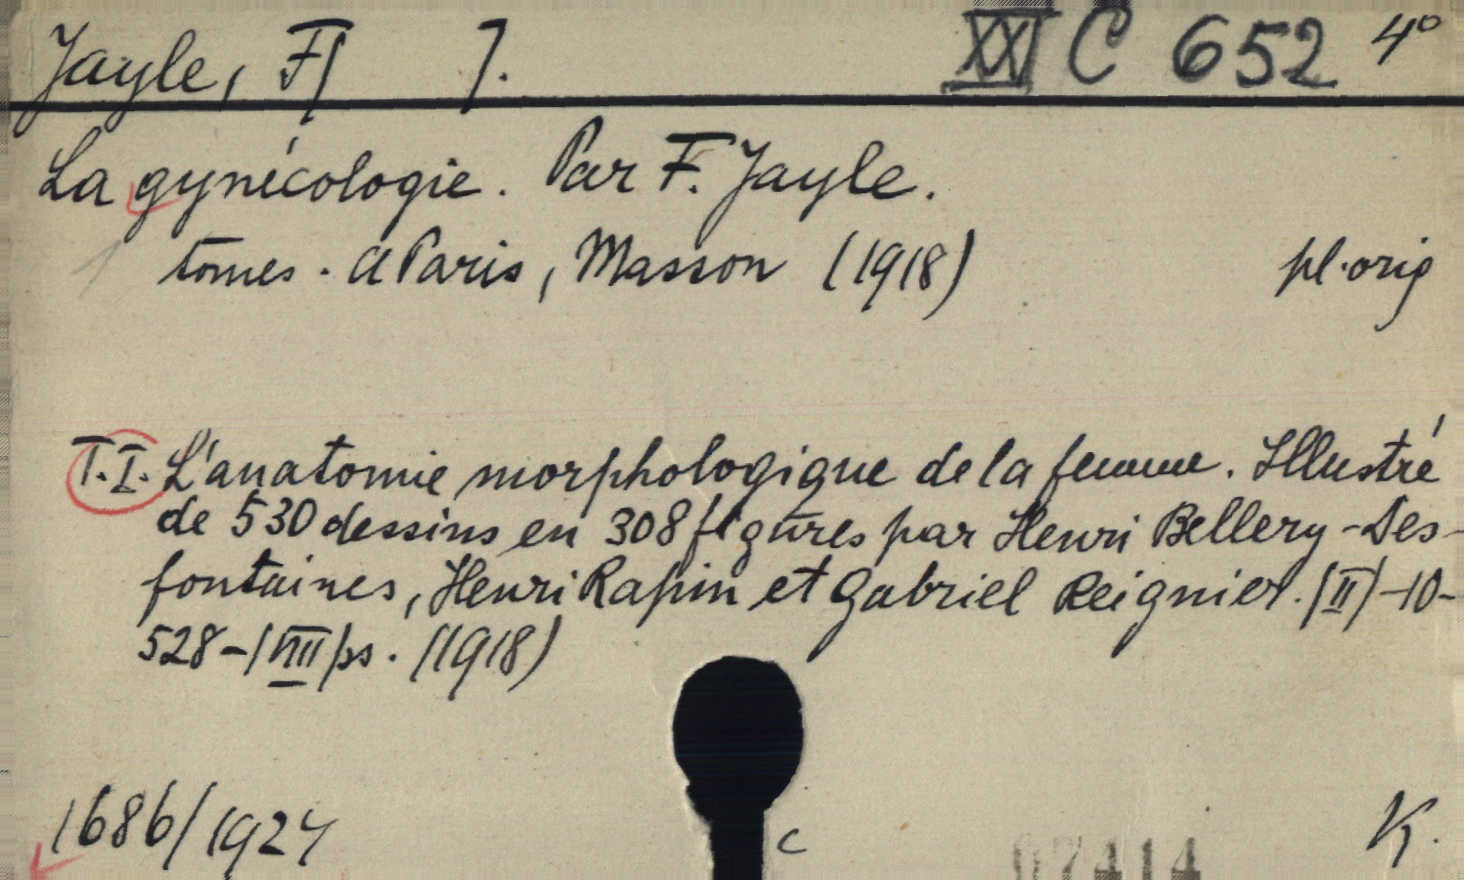 Jayle, F[ ]. XXI C 652 4°
La gynécologie. Par F. Jayle.
tomes. A Paris, Masson (1918) pl. orig
T.I. L'anatomie morphologique de la femme. Illustré
de 530 dessins en 308 figures par Henri Bellery-Des-
fontaines, Henri Rapin et Gabriel Reignier. (II)-10-
528-(VIII) ps. (1918)
1686/1924
c
K.